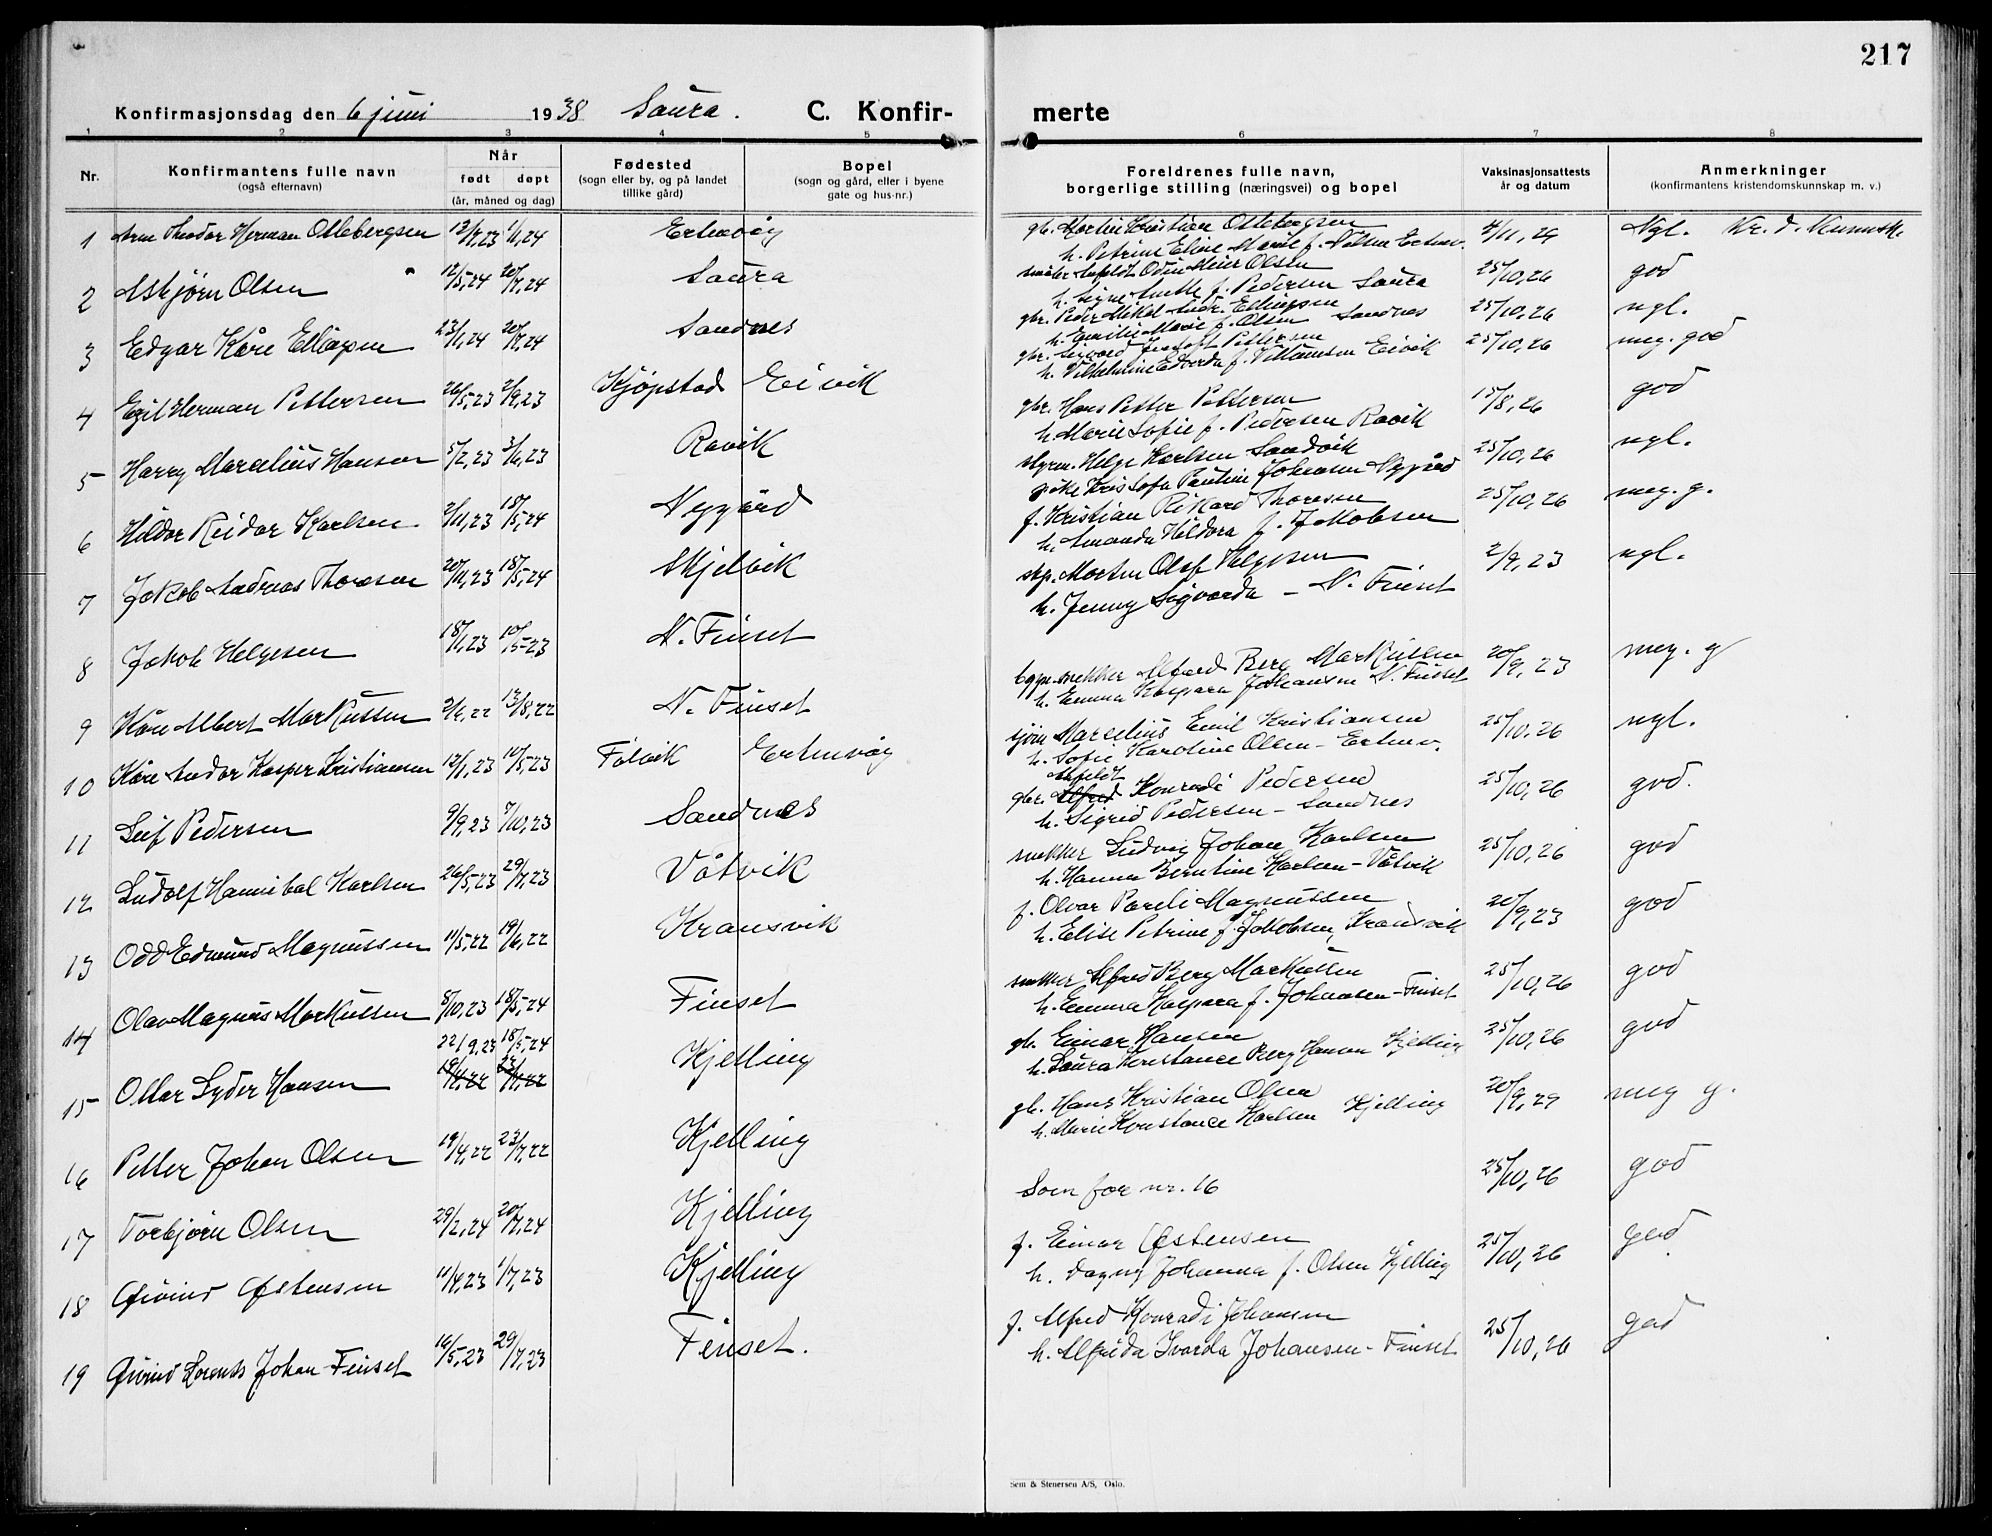 217
Konfirmasjonsdag den 6 juni 1938 Saura. C. Konfirmerte
1 2 3 4 5 6 7 8
Nr. Konfirmantens fulle navn (også efternavn) Når født døpt (år, måned og dag) Fødested (sogn eller by, og på landet tillike gård) Bopel (sogn og gård, eller i byene gate og hus-nr.) Foreldrenes fulle navn, borgerlige stilling (næringsvei) og bopel Vaksinasjonsattests år og datum Anmerkninger (konfirmantens kristendomskunnskap m. v.)
1 Arne Theodor Herman Ottebergsen 1/1,24 Ertenvåg gb. Martin Kristian Ottebergsen 4/11,29 Ngl. Kr. d. Kunnsk.
h. Petrine Eline Marie f. Nilsen Ertenv.
2 Asbjørn Olsen 12/5,24 20/7,24 Saura Odin Meier Olsen 25/10,26 god
h. Signe Anette f. Pedersen Saura
3 Edgar Kåre Ellingsen 23/1,24 20/7,24 Sandnes gbr. Peder Mikal Andr. Ellingsen 25/10,26 ngl.
h. Emilie Marie f. Olsen Sandnes
4 Egil Herman Pettersen 26/5,23 2/9,23 Kjøpstad Eivik gbr. Sigvard Pettersen 25/10,26 meg. god
h. Vilhelmine Edvarda f. Villumsen Eivik
5 Harry Marselius Hansen 5/2,23 3/6,23 Ravik gbr. Hans Petter Pettersen 15/8,26 god
h. Marie Sofie f. Pedersen Ravik
6 Hildor Reidar Karlsen 2/11,23 18/5,24 Nygård styrm. Helge Karlsen Sandvik 25/10,26 ngl.
pike Kristofa Pauline Johansen Nygård
7 Jakob Andreas Thoresen 20/11,23 18/5,24 Skjelvik f. Kristian Rikard Thoresen 25/10,26 meg. g.
h. Amanda Hildora f. Jakobsen
8 Jakob Helgesen 18/1,23 10/5-23 N. Finset skp. Morten Olaf Helgesen 2/9,23 ngl.
h. Jenny Sigvarda - N. Finset
9 Kåre Albert Markussen 13/8,22 N. Finset bygn.snekker Alfred Berg Markussen 20/9,23 meg. g
h. Emma Kaspara Johansen N. Finset
10 Kåre Andor Kasper Kristiansen 12/1,23 10/5,23 Ertenvåg Marselius Emil Kristiansen 25/10,26 ngl.
h. Sofie Karoline Olsen - Ertenv.
11 Leif Pedersen 9/9,23 7/10,23 Sandnes gbr. Alfred Konradi Pedersen 25/10,26 god.
h. Sigrid Pedersen - Sandnes
12 Ludolf Hannibal Karlsen 26/5,23 29/7,23 Våtvik snekker Ludvig Johan Karlsen 25/10,26 god
h. Hanna Berntine Karlsen - Våtvik
13 Odd Edmund Magnussen 11/5,22 19/6,22 Kransvik f. Olvar Pareli Magnussen 20/9,23 god
h. Elise Petrine f. Jakobsen, Kransvik
14 Olav Magnus Markussen 8/10,23 18/5,24 Finset snekker Alfred Berg Markussen 25/10,26 god
h. Emma Kaspara f. Johansen - Finset
22/9,23 18/5,24
15 Ottar Lyder Hansen 19/4,22 23/7,22 Kjelling gb. Einar Hansen 25/10,26 god
h. Laura Konstance Berg Hansen Kjelling
16 Petter Johan Olsen 19/4,22 23/7,22 Kjelling gb. Hans Kristian Olsen 20/9,29 meg g.
h. Marie Konstance Karlsen Kjelling
17 Torbjørn Olsen 29/2,24 20/7,24 Kjelling Som for nr. 16 25/10,26 god
18 Øivind Østensen 11/4,23 1/7,23 Kjelling f. Einar Østensen 25/10,26 god
h. Dagny Johanna f. Olsen Kjelling
19 Øivind Lorents Johan Finset 16/5,23 29/7,23 Finset. f. Alfred Konradi Johansen 25/10,26 god
h. Alfrida Ivarda Johansen - Finset
Sem & Stenersen A/S, Oslo.